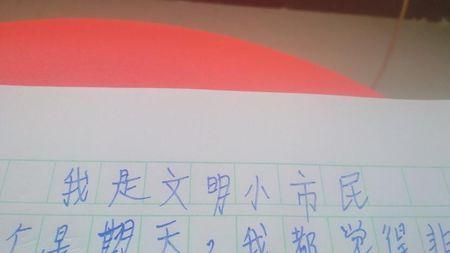 我是文明小市民
天，我都觉得非